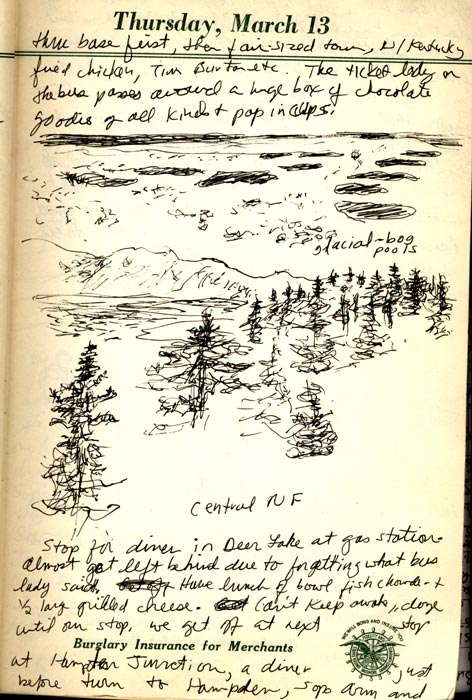 Thursday, March 13
thru base first, then fair-sized town, w/Kentucky
fried chicken, Tim Burton etc. The ticket lady on
the bus passes around a huge box of chocolate
goodies of all kinds + pop in cups.
glacial-bog
pools
Central NF
Stop for diner in Deer Lake at gas station
almost get left behind due to forgetting what bus
lady said, Have lunch of bowl fish chowder +
½ lrg grilled cheese. Can't keep awake, doze
until our stop, we get off at next stop
Burglary Insurance for Merchants
WE WILL BOND AND INSURE YOU
at Hampden Junction, a diner just
before turn to Hampden, Sops Arm and